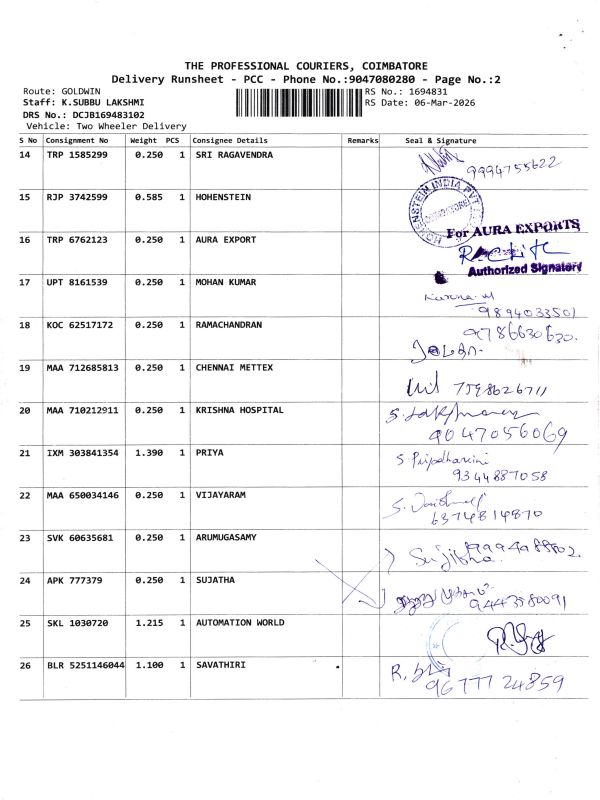 THE PROFESSIONAL COURIERS, COIMBATORE
Delivery Runsheet - PCC - Phone No.:9047080280 - Page No.:2
Route: GOLDWIN RS No.: 1694831
Staff: K.SUBBU LAKSHMI RS Date: 06-Mar-2026
DRS No.: DCJB169483102
Vehicle: Two Wheeler Delivery
S No Consignment No Weight PCS Consignee Details Remarks Seal & Signature
14 TRP 1585299 0.250 1 SRI RAGAVENDRA 9994755622
15 RJP 3742599 0.585 1 HOHENSTEIN
HOHENSTEIN INDIA PVT
For AURA EXPORTS
16 TRP 6762123 0.250 1 AURA EXPORT
Authorized Signatory
17 UPT 8161539 0.250 1 MOHAN KUMAR
9894033501
18 KOC 62517172 0.250 1 RAMACHANDRAN 9786630630.
19 MAA 712685813 0.250 1 CHENNAI METTEX 7598626711
20 MAA 710212911 0.250 1 KRISHNA HOSPITAL
9047056069
21 IXM 303841354 1.390 1 PRIYA S. Priyadharsini
9344887058
22 MAA 650034146 0.250 1 VIJAYARAM
6374814870
23 SVK 60635681 0.250 1 ARUMUGASAMY
Sujitha
24 APK 777379 0.250 1 SUJATHA
9443580091
25 SKL 1030720 1.215 1 AUTOMATION WORLD
26 BLR 5251146044 1.100 1 SAVATHIRI
9677724859